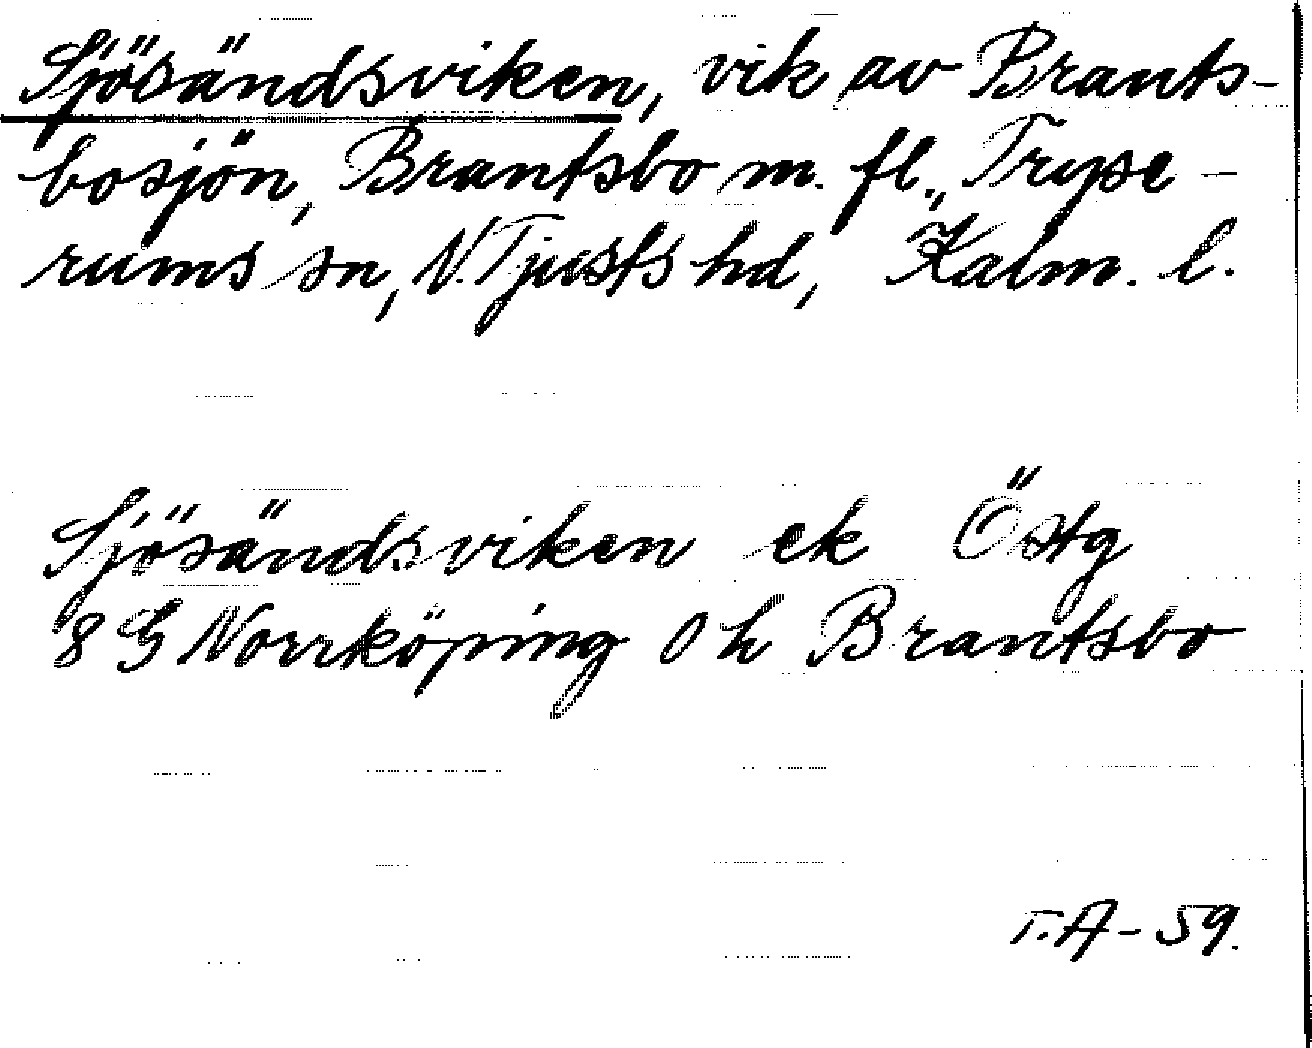 Sjösändsviken, vik av Brants-
bosjön, Brantsbo m. fl., Tryse-
rums sn, N. Tjusts hd, Kalm. l.
Sjösändsviken ek Östg
8 G Norrköping 0 h Brantsbo
T.A-59.